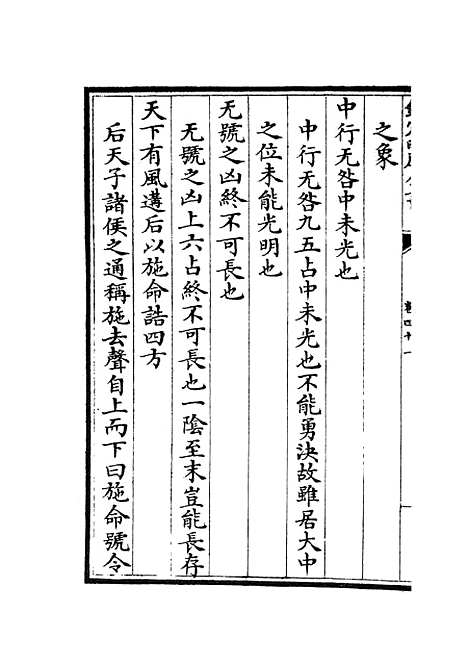 之象
中行无咎中未光也
中行无咎九五占中未光也不能勇決故雖居大中
之位未能光明也
无號之凶終不可長也
无號之凶上六占終不可長也一陰至末豈能長存
天下有風遘后以施命誥四方
后天子諸侯之通稱施去聲自上而下曰施命號令